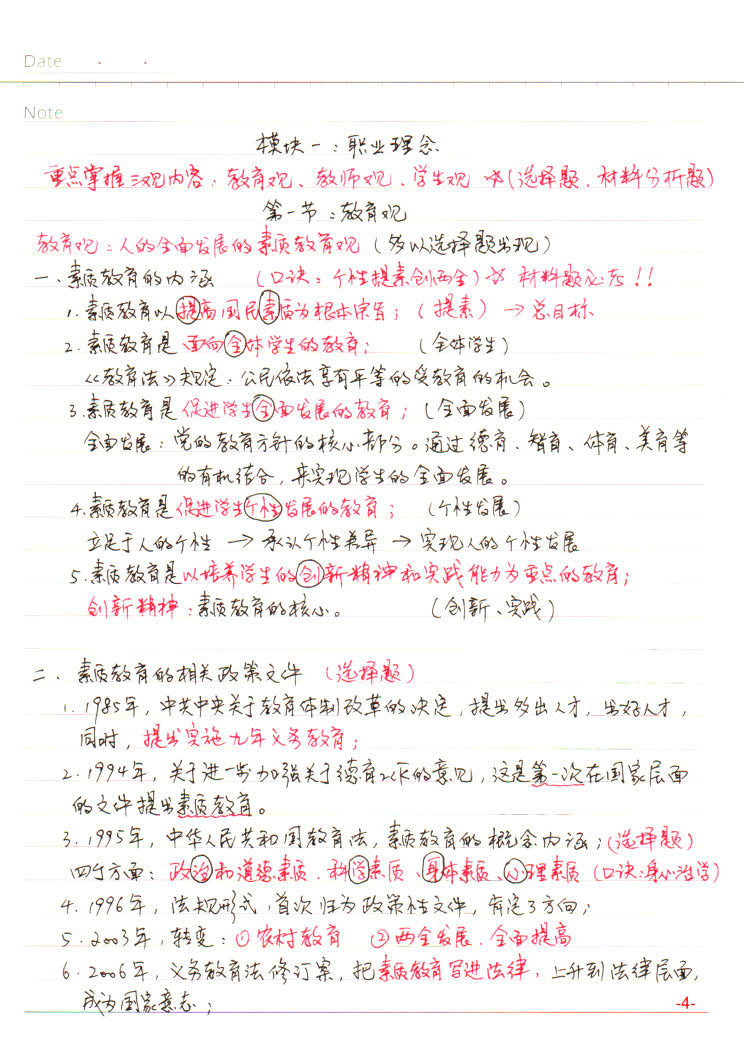 Date
Note
模块一：职业理念
重点掌握三观内容：教育观、教师观、学生观 (选择题、材料分析题)
第一节：教育观
教育观：人的全面发展的素质教育观 (多以选择题出现)
一、素质教育的内涵 (口诀：个性提素创两全) 材料题必考!!
1.素质教育以提高国民素质为根本宗旨；(提素) → 总目标
2.素质教育是面向全体学生的教育；(全体学生)
《教育法》规定：公民依法享有平等的受教育的机会。
3.素质教育是促进学生全面发展的教育；(全面发展)
全面发展：党的教育方针的核心部分。通过德育、智育、体育、美育等
的有机结合，来实现学生的全面发展。
4.素质教育是促进学生个性发展的教育；(个性发展)
立足于人的个性 → 承认个性差异 → 实现人的个性发展
5.素质教育是以培养学生的创新精神和实践能力为重点的教育；
创新精神：素质教育的核心。 (创新、实践)
二、素质教育的相关政策文件 (选择题)
1.1985年，中共中央关于教育体制改革的决定，提出多出人才，出好人才，
同时，提出实施九年义务教育；
2.1994年，关于进一步加强关于德育工作的意见，这是第一次在国家层面
的文件提出素质教育。
3.1995年，中华人民共和国教育法，素质教育的概念内涵；(选择题)
四个方面：政治和道德素质、科学素质、身体素质、心理素质 (口诀：身心治学)
4.1996年，法规形式，首次归为政策性文件，肯定了方向；
5.2003年，转变：①农村教育 ②两全发展、全面提高
6.2006年，义务教育法修订案，把素质教育写进法律，上升到法律层面，
成为国家意志；
-4-